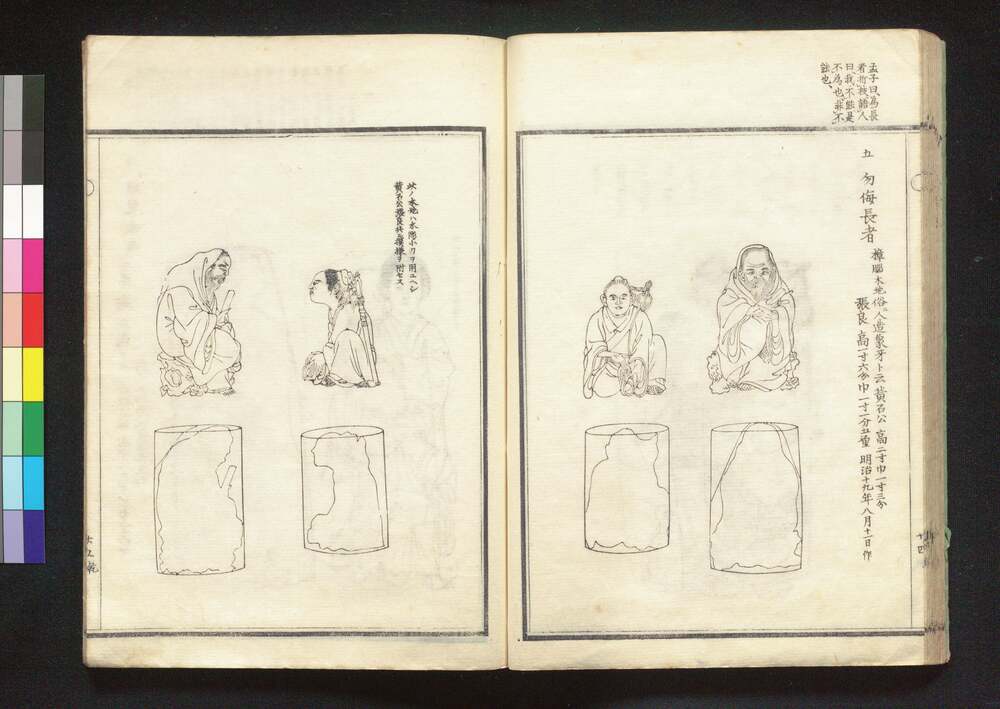 孟子曰、為長
者折枝、語人
曰、我不能、是
不為也、非不
能也、
五 勿侮長者
樟脳木地俗ニ人造象牙ト云 黄石公 高二寸巾一寸三分
張良 高一寸六分巾一寸一分五厘 明治十九年八月十一日作
十四
此ノ木地ハ木際小刀ヲ用ユヘシ
黄石公張良共ニ模様ヲ附セス
十五乾